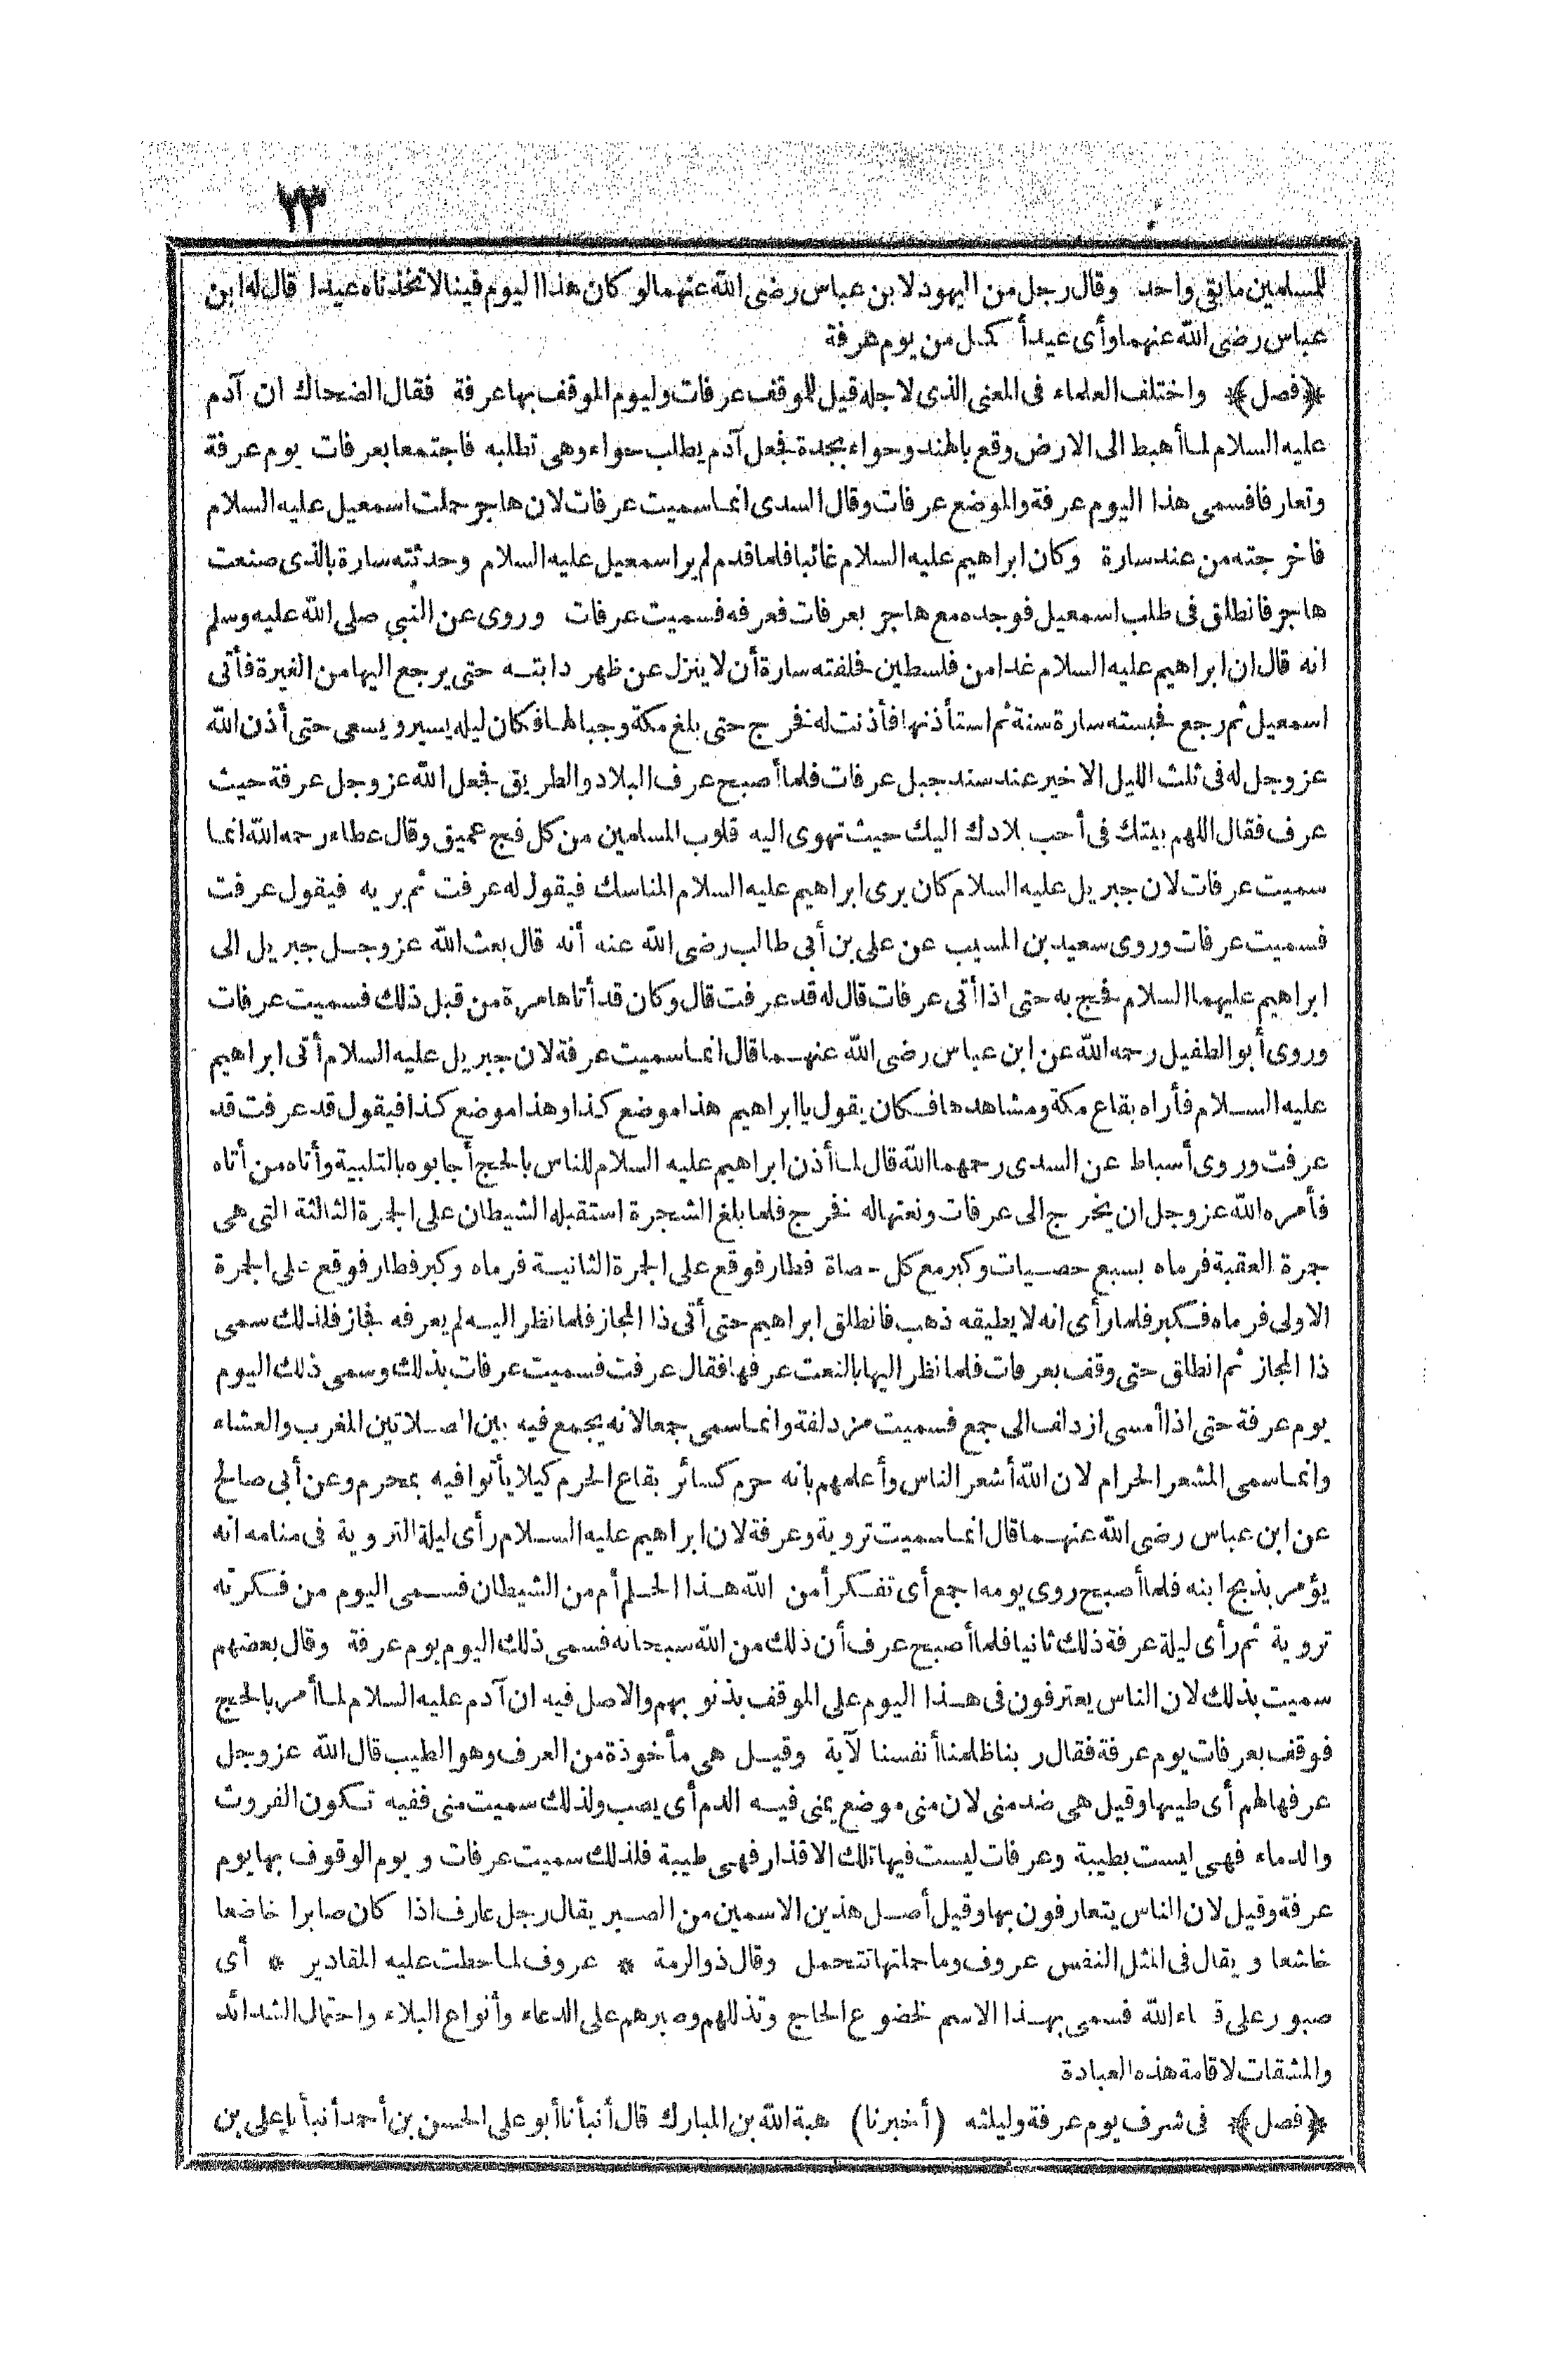 ٢٣
للمسلمين ما بقى واحد وقال رجل من اليهود لابن عباس رضى الله عنهما لو كان هذا اليوم فينا لاتخذناه عيدا قال له ابن
عباس رضى الله عنهما وأى عيد أكمل من يوم عرفة
﴿فصل﴾ واختلف العلماء فى المعنى الذى لاجله قيل للموقف عرفات وليوم الموقف بها عرفة فقال الضحاك ان آدم
عليه السلام لما أهبط الى الارض وقع بالهند وحواء بجدة فجعل آدم يطلب حواء وهى تطلبه فاجتمعا بعرفات يوم عرفة
وتعارفا فسمى هذا اليوم عرفة والموضع عرفات وقال السدى انما سميت عرفات لان هاجر حملت اسمعيل عليه السلام
فاخرجته من عند سارة وكان ابراهيم عليه السلام غائبا فلما قدم لم ير اسمعيل عليه السلام وحدثته سارة بالذى صنعت
هاجر فانطلق فى طلب اسمعيل فوجده مع هاجر بعرفات فعرفه فسميت عرفات وروى عن النبى صلى الله عليه وسلم
انه قال ان ابراهيم عليه السلام غدا من فلسطين فحلفته سارة أن لا ينزل عن ظهر دابته حتى يرجع اليها من الغيرة فأتى
اسمعيل ثم رجع فحبسته سارة سنة ثم استأذنها فأذنت له فخرج حتى بلغ مكة وجبالها فكان ليله يسير ويسعى حتى أذن الله
عز وجل له فى ثلث الليل الاخير عند سند جبل عرفات فلما أصبح عرف البلاد والطريق فجعل الله عز وجل عرفة حيث
عرف فقال اللهم بيتك فى أحب بلادك اليك حيث تهوى اليه قلوب المسلمين من كل فج عميق وقال عطاء رحمه الله انما
سميت عرفات لان جبريل عليه السلام كان يرى ابراهيم عليه السلام المناسك فيقول له عرفت ثم يريه فيقول عرفت
فسميت عرفات وروى سعيد بن المسيب عن على بن أبى طالب رضى الله عنه أنه قال بعث الله عز وجل جبريل الى
ابراهيم عليهما السلام فحج به حتى اذا أتى عرفات قال له قد عرفت قال وكان قد أتاها مرة من قبل ذلك فسميت عرفات
وروى أبو الطفيل رحمه الله عن ابن عباس رضى الله عنهما قال انما سميت عرفة لان جبريل عليه السلام أتى ابراهيم
عليه السلام فأراه بقاع مكة ومشاهدها فكان يقول يا ابراهيم هذا موضع كذا وهذا موضع كذا فيقول قد عرفت قد
عرفت وروى أسباط عن السدى رحمهما الله قال لما أذن ابراهيم عليه السلام للناس بالحج أجابوه بالتلبية وأتاه من أتاه
فأمره الله عز وجل ان يخرج الى عرفات ونعتها له فخرج فلما بلغ الشجرة استقبله الشيطان على الجرة الثالثة التى هى
جرة العقبة فرماه بسبع حصيات وكبر مع كل حصاة فطار فوقع على الجرة الثانية فرماه وكبر فطار فوقع على الجرة
الاولى فرماه فكبر فلما رأى انه لا يطيقه ذهب فانطلق ابراهيم حتى أتى ذا المجاز فلما نظر اليه لم يعرفه فجاز فلذلك سمى
ذا المجاز ثم انطلق حتى وقف بعرفات فلما نظر اليها بالنعت عرفها فقال عرفت فسميت عرفات بذلك وسمى ذلك اليوم
يوم عرفة حتى اذا أمسى ازدلف الى جمع فسميت مزدلفة وانما سمى جمعا لانه يجمع فيه بين الصلاتين المغرب والعشاء
وانما سمى المشعر الحرام لان الله أشعر الناس وأعلمهم بانه حرم كسائر بقاع الحرم كيلا يأتوا فيه بمحرم وعن أبى صالح
عن ابن عباس رضى الله عنهما قال انما سميت تروية وعرفة لان ابراهيم عليه السلام رأى ليلة التروية فى منامه انه
يؤمر بذبح ابنه فلما أصبح روى يومه اجمع أى تفكر أمن الله هذا الحلم أم من الشيطان فسمى اليوم من فكرته
تروية ثم رأى ليلة عرفة ذلك ثانيا فلما أصبح عرف أن ذلك من الله سبحانه فسمى ذلك اليوم يوم عرفة وقال بعضهم
سميت بذلك لان الناس يعترفون فى هذا اليوم على الموقف بذنوبهم والاصل فيه ان آدم عليه السلام لما أمر بالحج
فوقف بعرفات يوم عرفة فقال ربنا ظلمنا أنفسنا لآية وقيل هى مأخوذة من العرف وهو الطيب قال الله عز وجل
عرفها لهم أى طيبها وقيل هى ضد منى لان منى موضع يمنى فيه الدم أى يصب ولذلك سميت منى ففيه تكون الفروث
والدماء فهى ليست بطيبة وعرفات ليست فيها تلك الاقذار فهى طيبة فلذلك سميت عرفات ويوم الوقوف بها يوم
عرفة وقيل لان الناس يتعارفون بها وقيل أصل هذين الاسمين من الصبر يقال رجل عارف اذا كان صابرا خاضعا
خاشعا ويقال فى المثل النفس عروف وما حملتها تتحمل وقال ذو الرمة * عروف لما حطت عليه المقادير * أى
صبور على قضاء الله فسمى بهذا الاسم لخضوع الحاج وتذللهم وصبرهم على الدعاء وأنواع البلاء واحتمال الشدائد
والمشقات لاقامة هذه العبادة
﴿فصل﴾ فى شرف يوم عرفة وليلته (أخبرنا) هبة الله بن المبارك قال أنبأنا أبو على الحسن بن أحمد أنبأ بإعلى بن